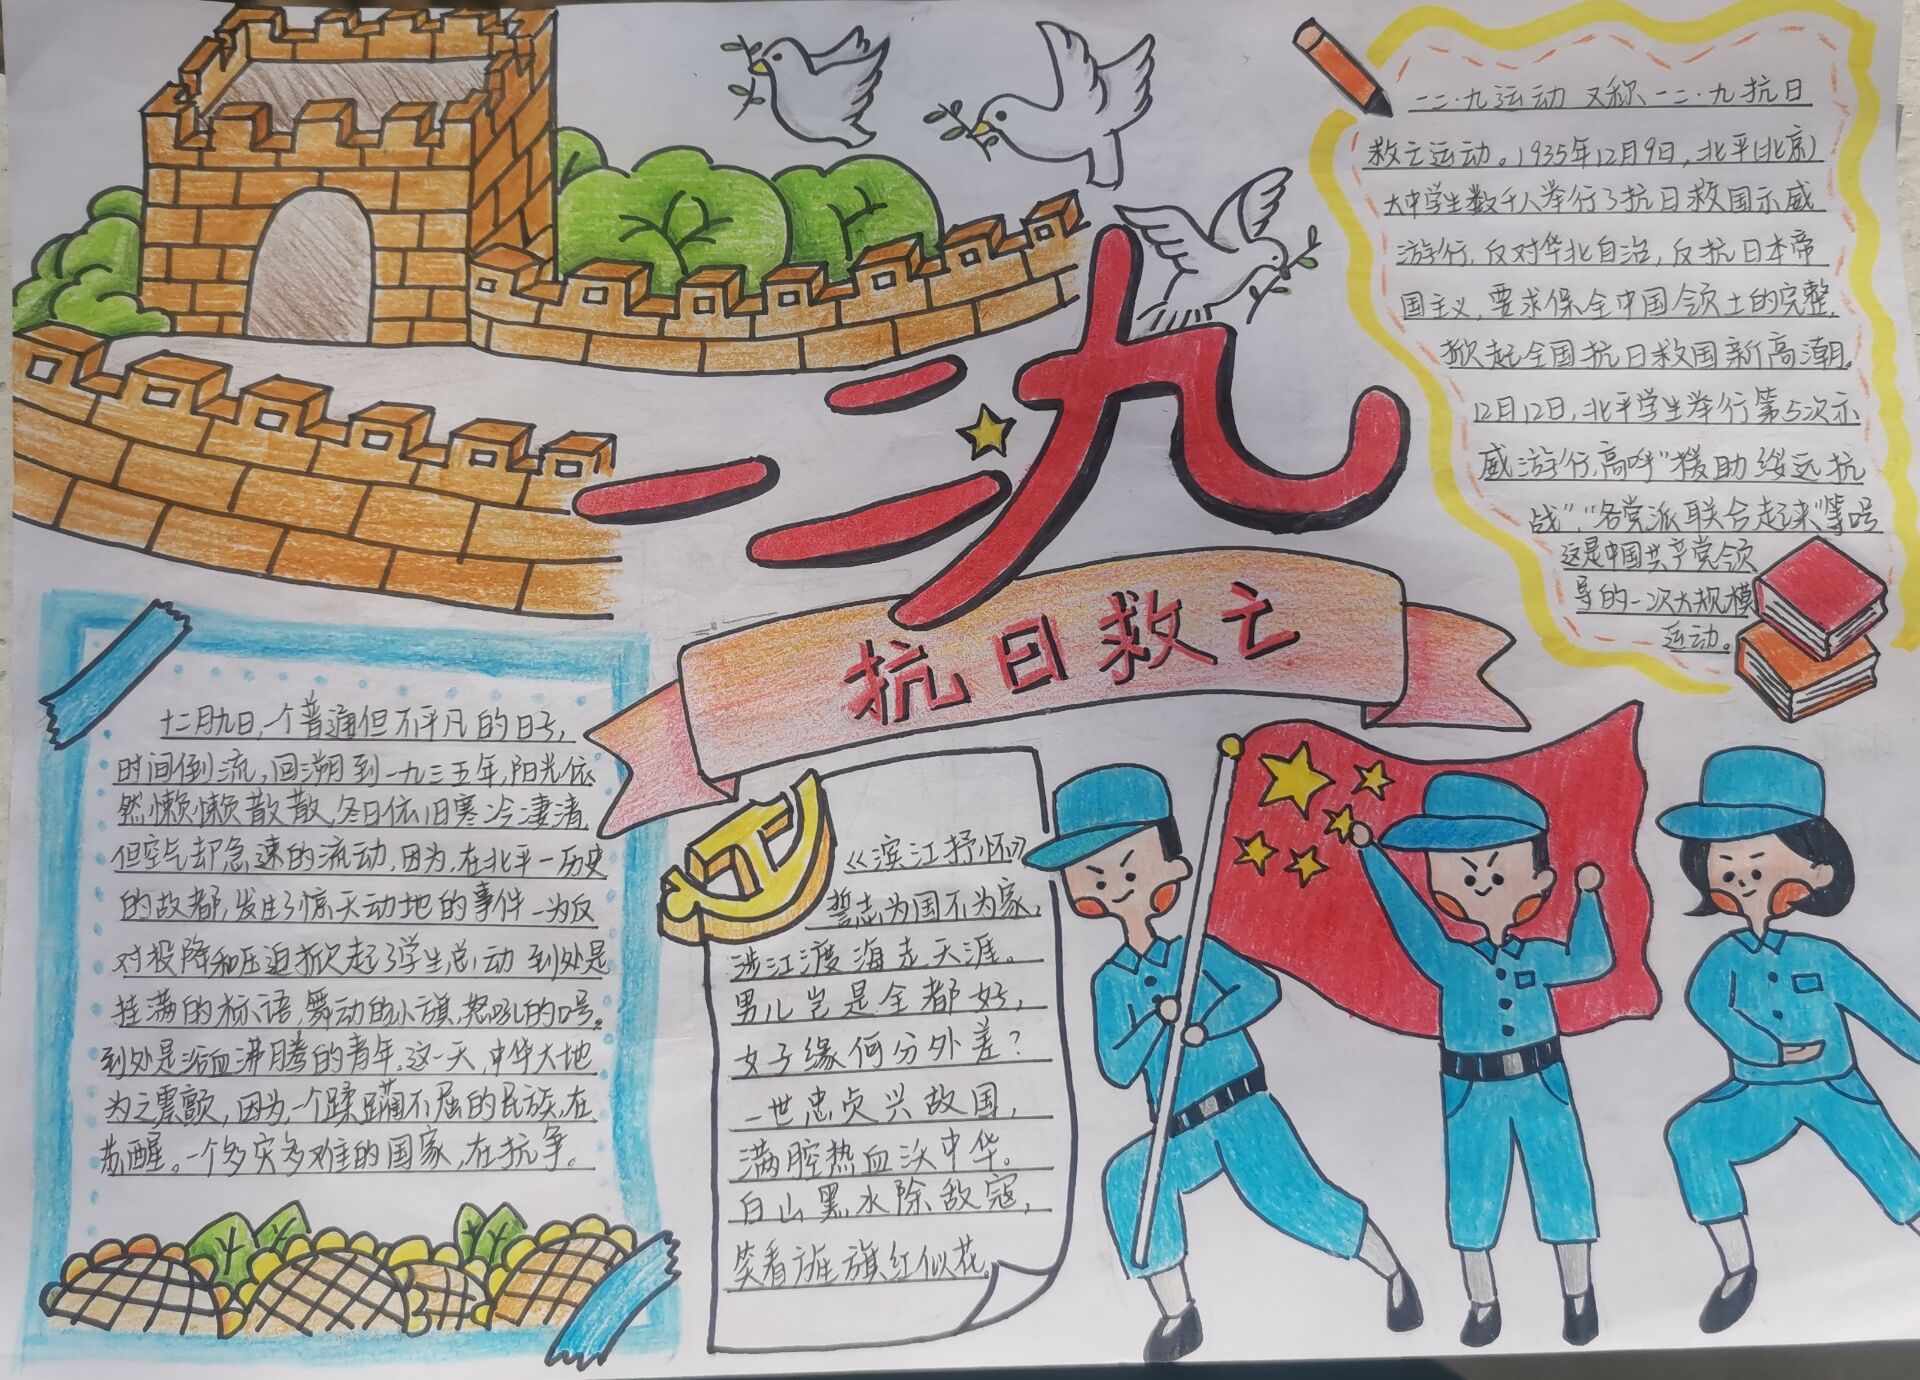 一二九
抗日救亡
一二·九运动 又称 一二·九抗日
救亡运动。1935年12月9日,北平(北京)
大中学生数千人举行了抗日救国示威
游行,反对华北自治,反抗日本帝
国主义,要求保全中国领土的完整,
掀起全国抗日救国新高潮。
12月12日,北平学生举行第5次示
威游行,高呼"援助绥远抗
战","各党派联合起来"等口号
这是中国共产党领
导的一次大规模
运动。
十二月九日,一个普通但不平凡的日子,
时间倒流,回溯到一九三五年,阳光依
然懒懒散散,冬日依旧寒冷凄清,
但空气却急速的流动,因为,在北平一历史
的故都,发生了惊天动地的事件一为反
对投降和压迫掀起了学生总动 到处是
挂满的标语,舞动的小旗,怒吼的口号。
到处是浴血沸腾的青年。这一天,中华大地
为之震颤,因为,一个蹂躏不屈的民族,在
苏醒。一个多灾多难的国家,在抗争。
《滨江抒怀》
誓志为国不为家,
涉江渡海走天涯。
男儿岂是全都好,
女子缘何分外差?
一世忠贞兴故国,
满腔热血沃中华。
白山黑水除敌寇,
笑看旌旗红似花。